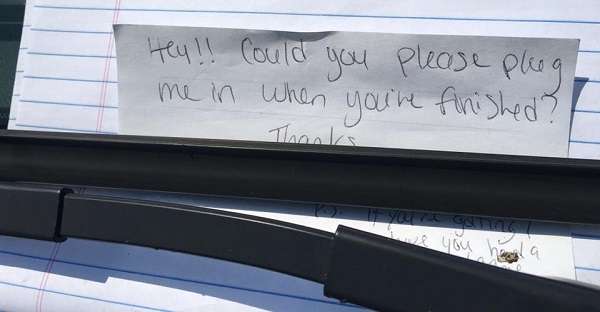 Hey!! Could you please plug
me in when you've finished?
Thanks
P.S. If you're getting
you